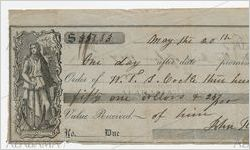 $351.83 May the 20th
One day after date promise
Order of W. P. S. Cocke three hun
fifty one dollars &
Value Received of him
No. Due John